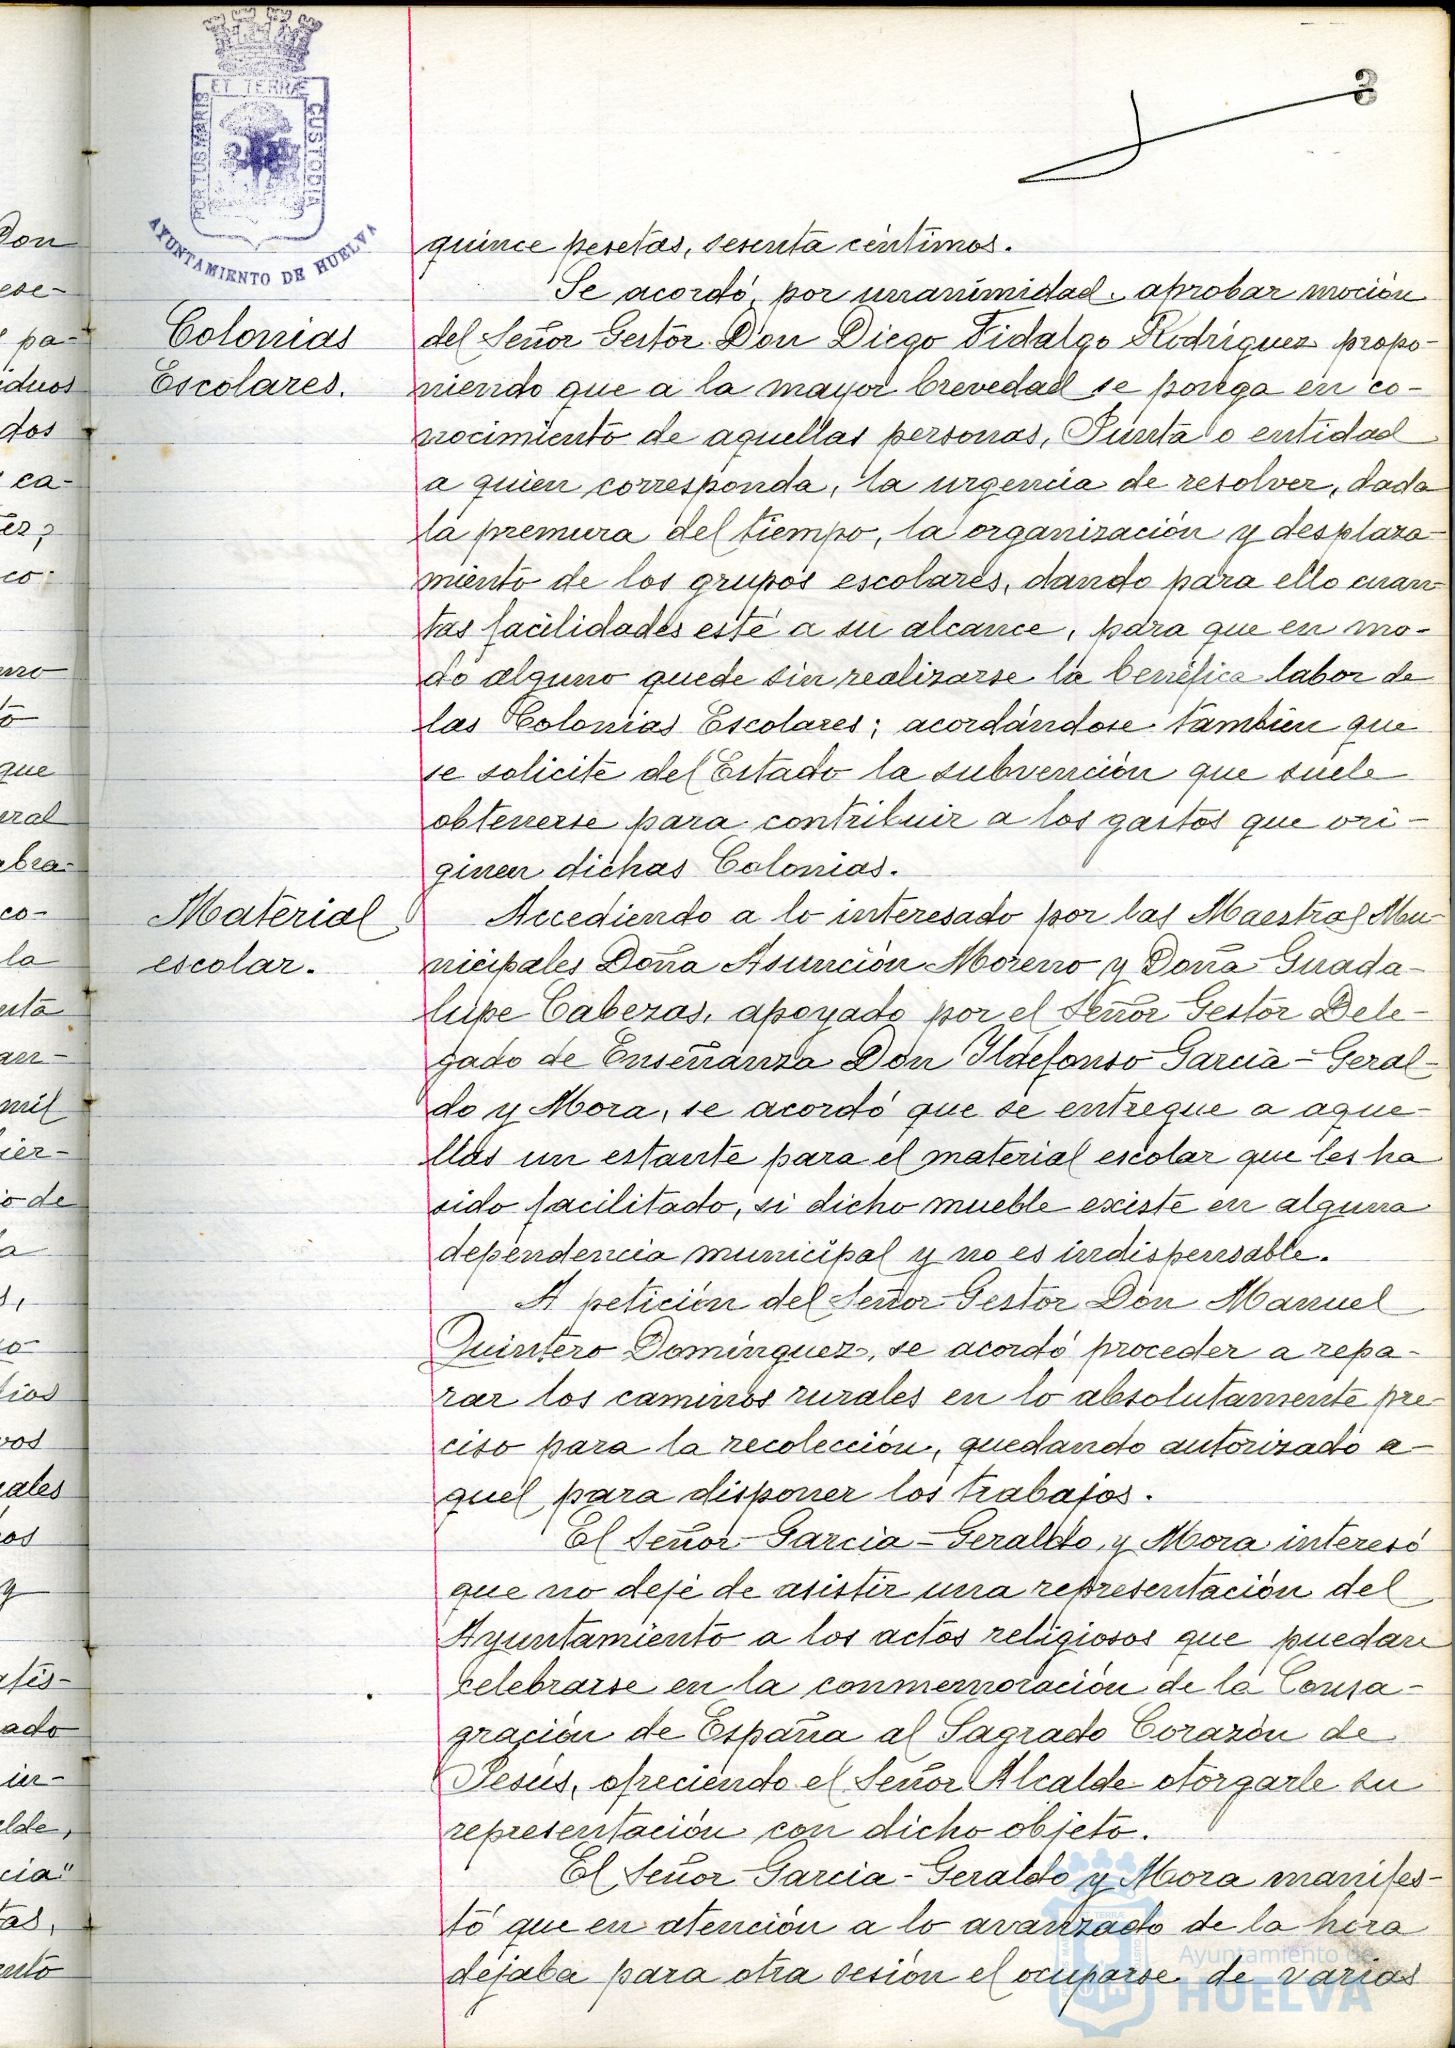 3
ET TERRÆ
PORTUS MARIS
CUSTODIA
AYUNTAMIENTO DE HUELVA
quince pesetas, sesenta céntimos.
Se acordó, por unanimidad, aprobar moción
Colonias
Escolares.
del Señor Gestor Don Diego Fidalgo Rodríguez propo-
niendo que a la mayor brevedad se ponga en co-
nocimiento de aquellas personas, Junta o entidad
a quien corresponda, la urgencia de resolver, dada
la premura del tiempo, la organización y desplaza-
miento de los grupos escolares, dando para ello cuan-
tas facilidades esté a su alcance, para que en mo-
do alguno quede sin realizarse la benéfica labor de
las Colonias Escolares; acordándose tambien que
se solicite del Estado la subvención que suele
obtenerse para contribuir a los gastos que ori-
ginen dichas Colonias.
Material
escolar.
Accediendo a lo interesado por las Maestras Mu-
nicipales Doña Asunción Moreno y Doña Guada-
lupe Cabezas, apoyado por el Señor Gestor Dele-
gado de Enseñanza Don Ildefonso García-Geral-
do y Mora, se acordó que se entregue a aque-
llas un estante para el material escolar que les ha
sido facilitado, si dicho mueble existe en alguna
dependencia municipal y no es indispensable.
A petición del Señor Gestor Don Manuel
Quintero Domínguez, se acordó proceder a repa-
rar los caminos rurales en lo absolutamente pre-
ciso para la recolección, quedando autorizado a-
quel para disponer los trabajos.
El Señor García-Geraldo y Mora interesó
que no deje de asistir una representación del
Ayuntamiento a los actos religiosos que puedan
celebrarse en la conmemoración de la Consa-
gración de España al Sagrado Corazón de
Jesús, ofreciendo el Señor Alcalde otorgarle su
representación con dicho objeto.
El Señor García-Geraldo y Mora manifes-
tó que en atención a lo avanzado de la hora
dejaba para otra sesión el ocuparse de varias
Ayuntamiento de
HUELVA